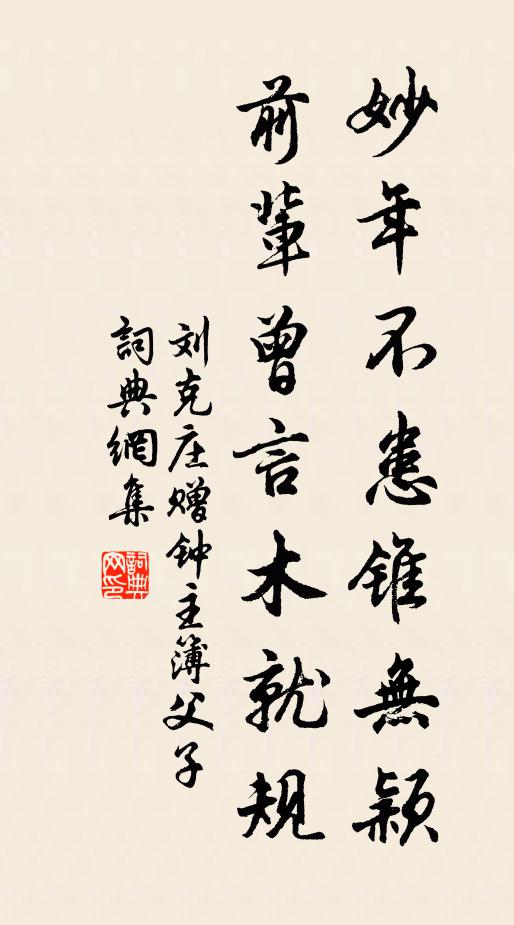 妙年不患锥無颖
前輩曾言木就規
刘克庄赠钟主簿父子
詞典網集
詞典網印